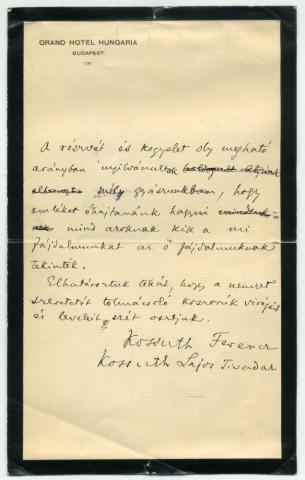 GRAND HOTEL HUNGARIA
BUDAPEST.
A részvét és kegyelet oly megható
arányban nyilvánultak
mély gyászunkban, hogy
emléket óhajtanánk hagyni
mind azoknak kik a mi
fájdalmunkat az ő fájdalmuknak
tekinték.
Elhatároztuk tehát, hogy a nemzet
szeretetét tolmácsoló koszorúk virágait
és leveleit szét osztjuk.
Kossuth Ferencz
Kossuth Lajos Tivadar